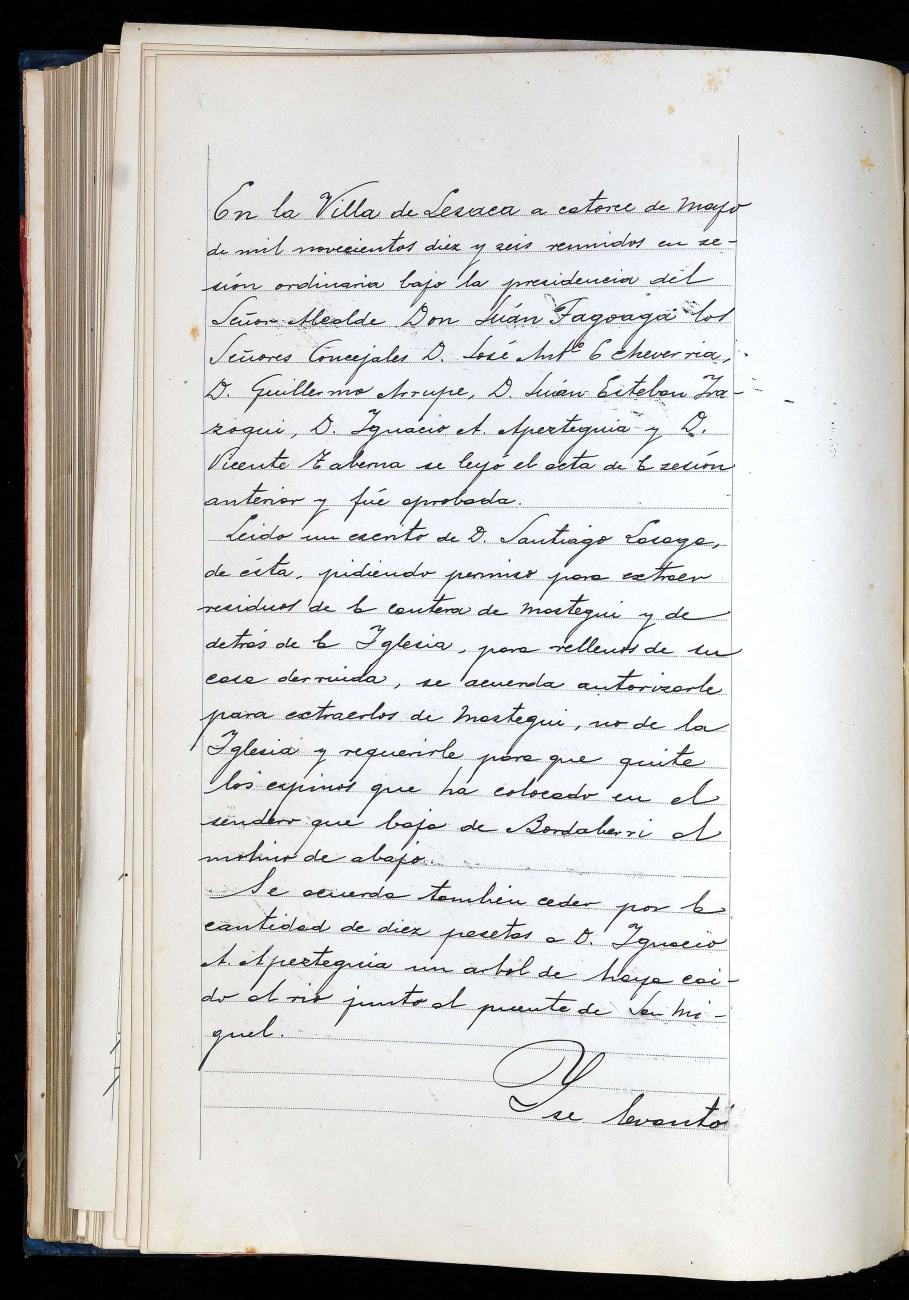 En la Villa de Lesaca a catorce de Mayo
de mil novecientos diez y seis reunidos en se-
sión ordinaria bajo la presidencia del
Señor Alcalde Don Juán Fagoaga los
Señores Concejales D. José Antº Echeverria,
D. Guillermo Arrupe, D. Juán Esteban Ira-
zoqui, D. Ignacio A. Apezteguia y D.
Vicente Taberna se leyó el acta de la sesión
anterior y fué aprobada.
Leido un escrito de D. Santiago Lasaga,
de ésta, pidiendo permiso para extraer
residuos de la cantera de Mastegui y de
detrás de la Iglesia, para rellenos de su
casa derruida, se acuerda autorizarle
para extraerlos de Mastegui, no de la
Iglesia y requerirle para que quite
los espinos que ha colocado en el
sendero que baja de Bordaberri al
molino de abajo.
Se acuerda también ceder por la
cantidad de diez pesetas a D. Ignacio
A. Apezteguia un arbol de haya cai-
do al rio junto al puente de San Mi-
guel.
Y se levantó